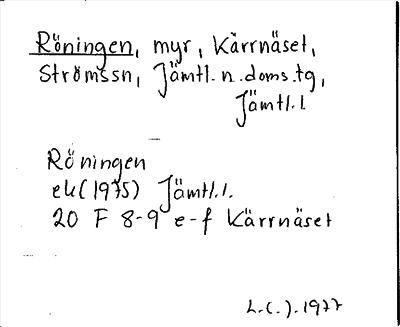 Röningen, myr, Kärrnäset,
Strömssn, Jämtl.n.doms.tg,
Jämtl.l.
Röningen
ek(1975) Jämtl.l.
20 F 8-9 e-f Kärrnäset
L.(.).1977